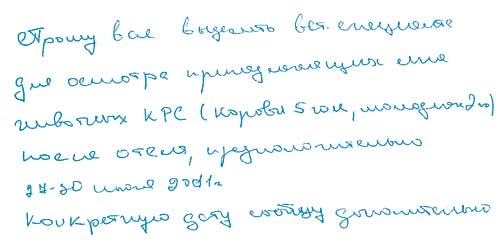 Прошу вас выделить вет. специалиста
для осмотра принадлежащих мне
животных КРС (коровы 5 гол, молодняк 2 го)
после отела, предположительно
27-30 июля 2011г
Конкретную дату сообщу дополнительно